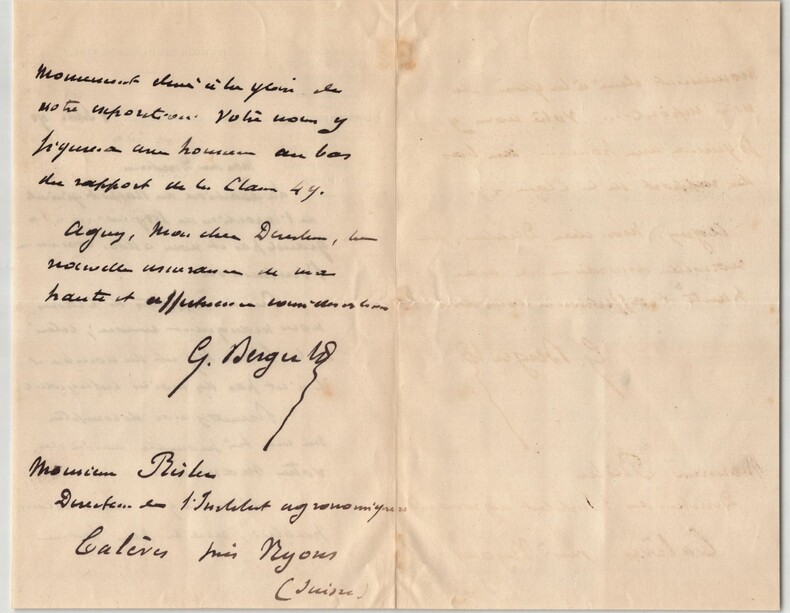 Monument élevé à la gloire de
notre exposition. Votre nom y
figurera avec honneur au bas
du rapport de la Classe 49.
Agréez, Mon cher Directeur, la
nouvelle assurance de ma
haute et affectueuse considération
G. Berger
Monsieur Risler
Directeur de l'Institut agronomique
Calèves près Nyons
(Suisse)